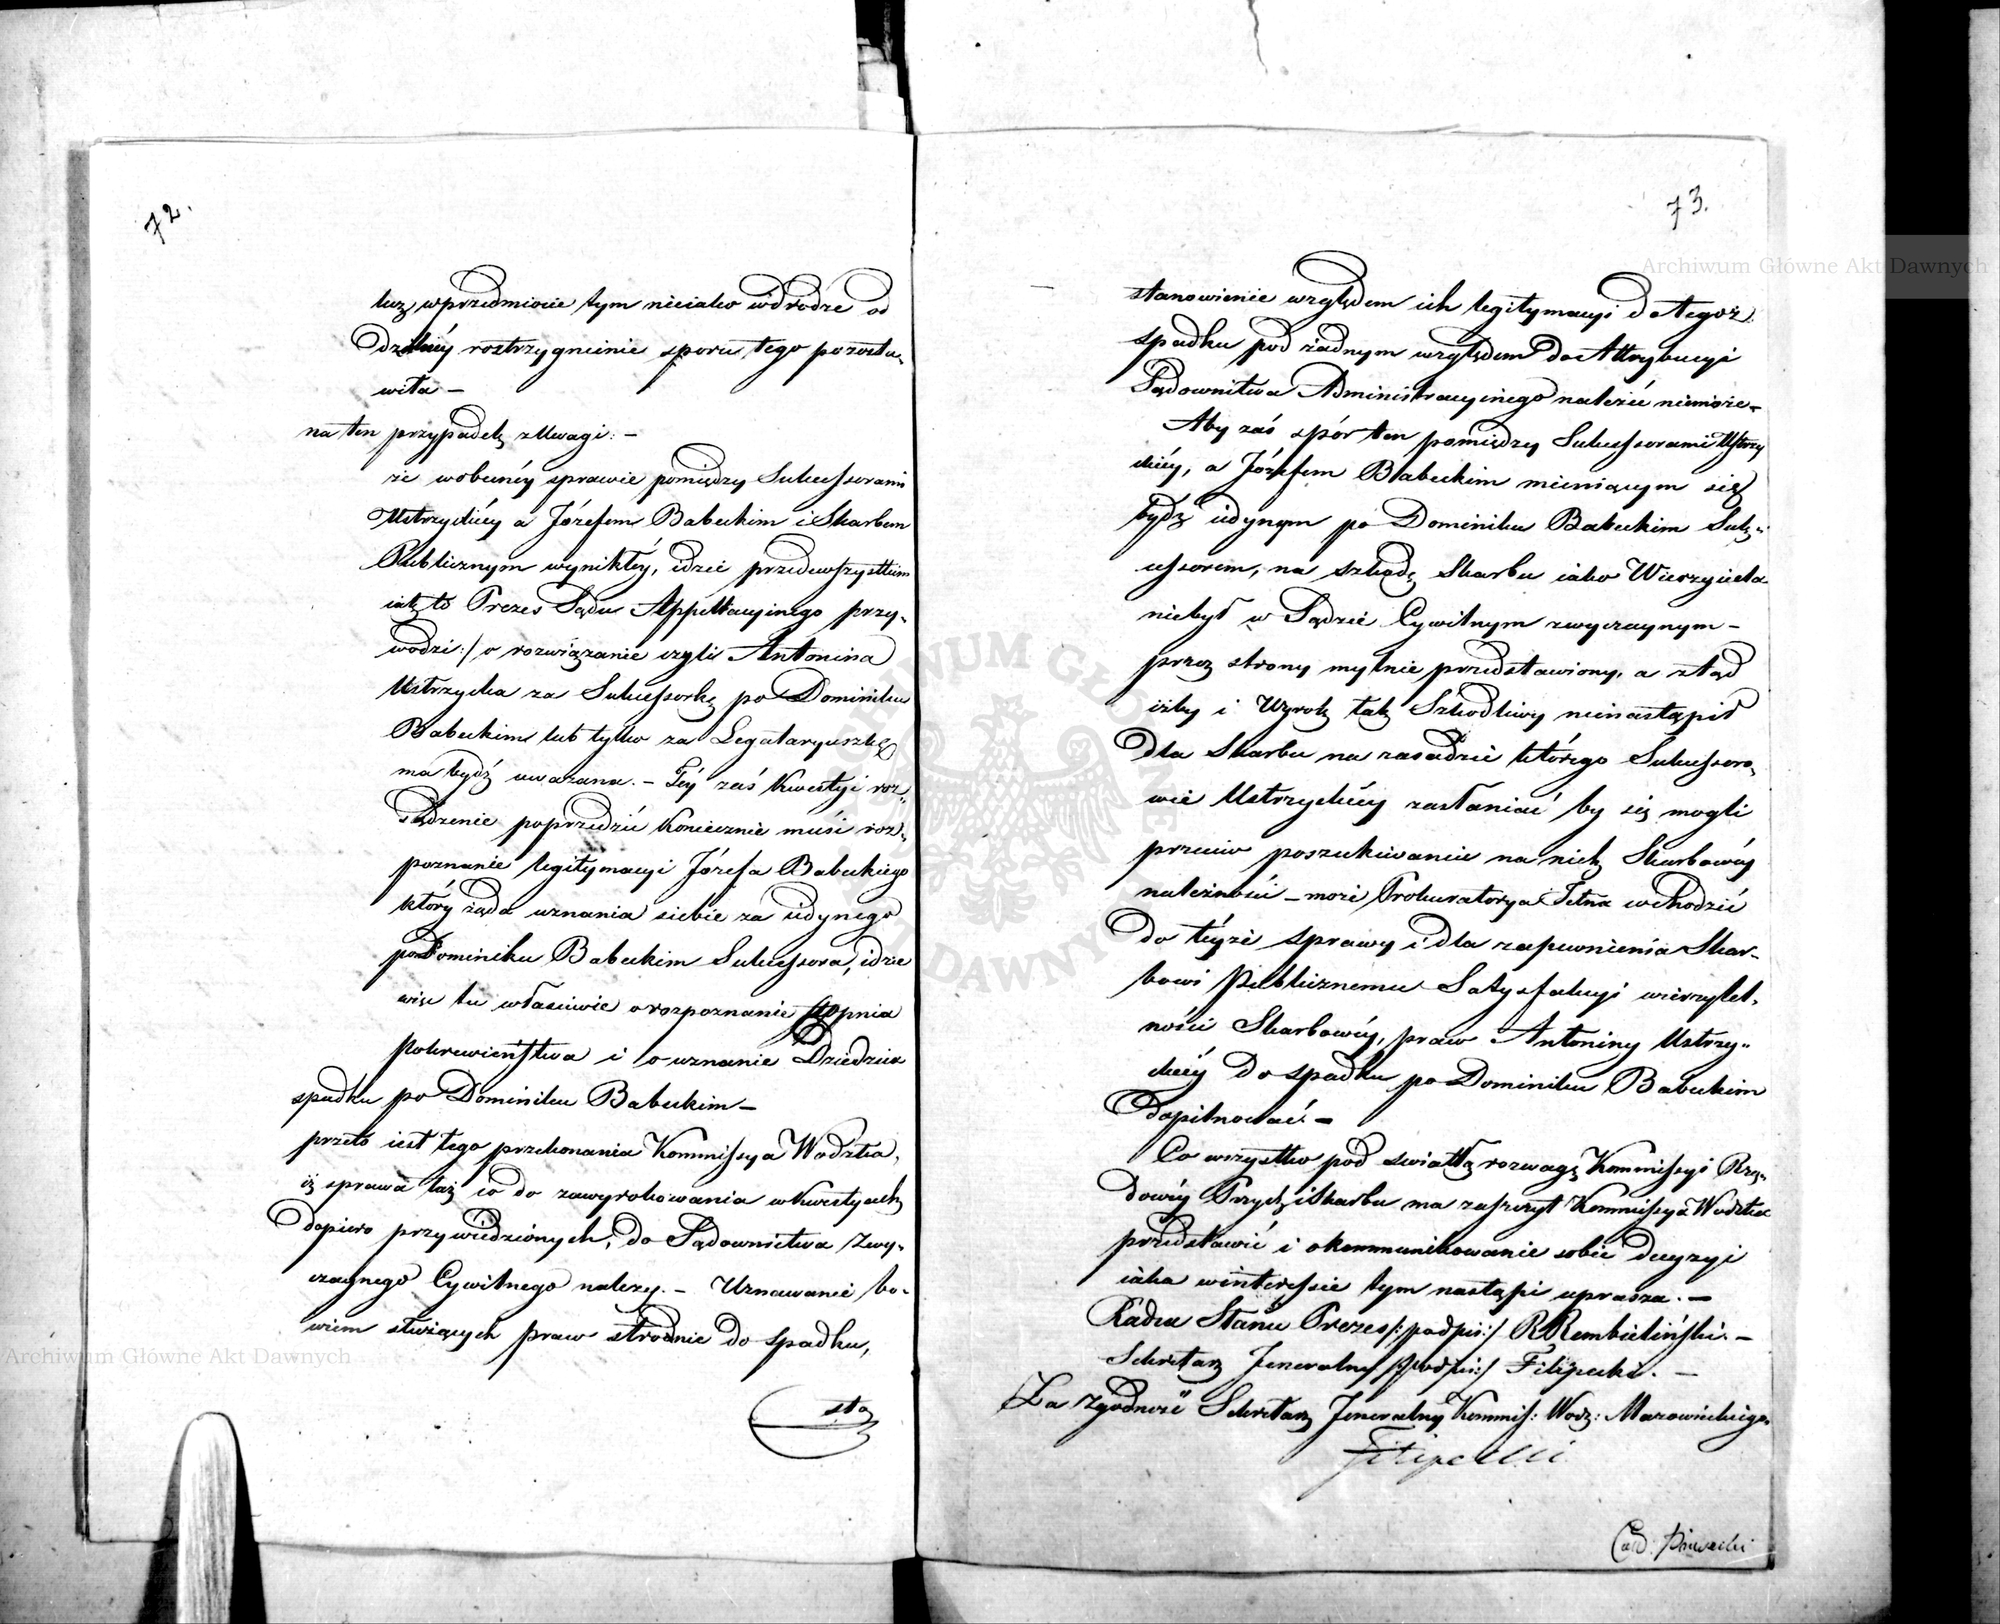 72.
lecz w przedmiocie tym nieiako w drodze od
dzielnéy roztrzygnienie sporu tego pozosta-
wiła —
na ten przypadek z Uwagi: —
że w obecnéy sprawie pomiędzy Sukcessorami
Ustrzyckiéy a Józefem Babeckim i Skarbem
Publicznym wynikłéy, idzie przedewszystkiem
iak to Prezes Sądu Appellacyinego przy-
wodzi :/ o rozwiązanie czyli Antonina
Ustrzycka za Sukcessorkę po Dominiku
Babeckim lub tylko za Legataryuszkę
ma bydź uważana. — Téy zaś Kwestyi roz-
sądzenie poprzedzić koniecznie musi roz-
poznanie legitymacyi Józefa Babeckiego
który żąda uznania siebie za iedynego
po Dominiku Babeckim Sukcessora, idzie
więc tu właściwie o rozpoznanie stopnia
pokrewieństwa i o uznanie Dziedzica
spadku po Dominiku Babeckim —
przeto iest tego przekonania Kommissya Wodzka,
iż sprawa taż co do zawyrokowania w kwestyach
dopiero przywiedzionych, do Sądownictwa Zwy-
czaynego Cywilnego należy. — Uznawanie bo-
wiem służących praw stronie do spadku,
sta
73.
stanowienie względem ich legitymacyi do tegoż
spadku pod żadnym względem do Attrybucyi
Sądownictwa Administracyinego należeć niemoże —
Aby zaś spór ten pomiędzy Sukcessorami Ustrzy
ckiéy, a Józefem Babeckim mieniącym się
bydź iedynym po Dominiku Babeckim Suk-
cessorem, na szkodę Skarbu iako Wierzyciela
niebył w Sądzie Cywilnym zwyczaynym —
przez strony mylnie przedstawiony, a ztąd
iżby i Wyrok tak Szkodliwy nienastąpił
dla Skarbu na zasadzie którego Sukcessoro-
wie Ustrzyckiéy zasłaniać by się mogli
przeciw poszukiwanie na nich Skarbowéy
należności — może Prokuratorya Jelna wchodzić
do téyże sprawy i dla zapewnienia Skar-
bowi Publicznemu Satysfakcyi wierzytel-
ności Skarbowéy, praw Antoniny Ustrzy-
ckiéy do spadku po Dominiku Babeckim
dopilnować. —
Co wszystko pod światłą rozwagę Kommissyi Rzą-
dowéy Przych i Skarbu ma zaszczyt Kommissya Wodzka
przedstawić i o kommunikowanie sobie decyzyi
iaka w interessie tym nastąpi uprasza. —
Radca Stanu Prezes /:podpis:/ R Rembieliński. —
Sekretarz Jeneralny /:podpis:/ Filipecki. —
Za Zgodność Sekretarz Jeneralny Kommis: Wodz: Mazowieckiego
Filipecki